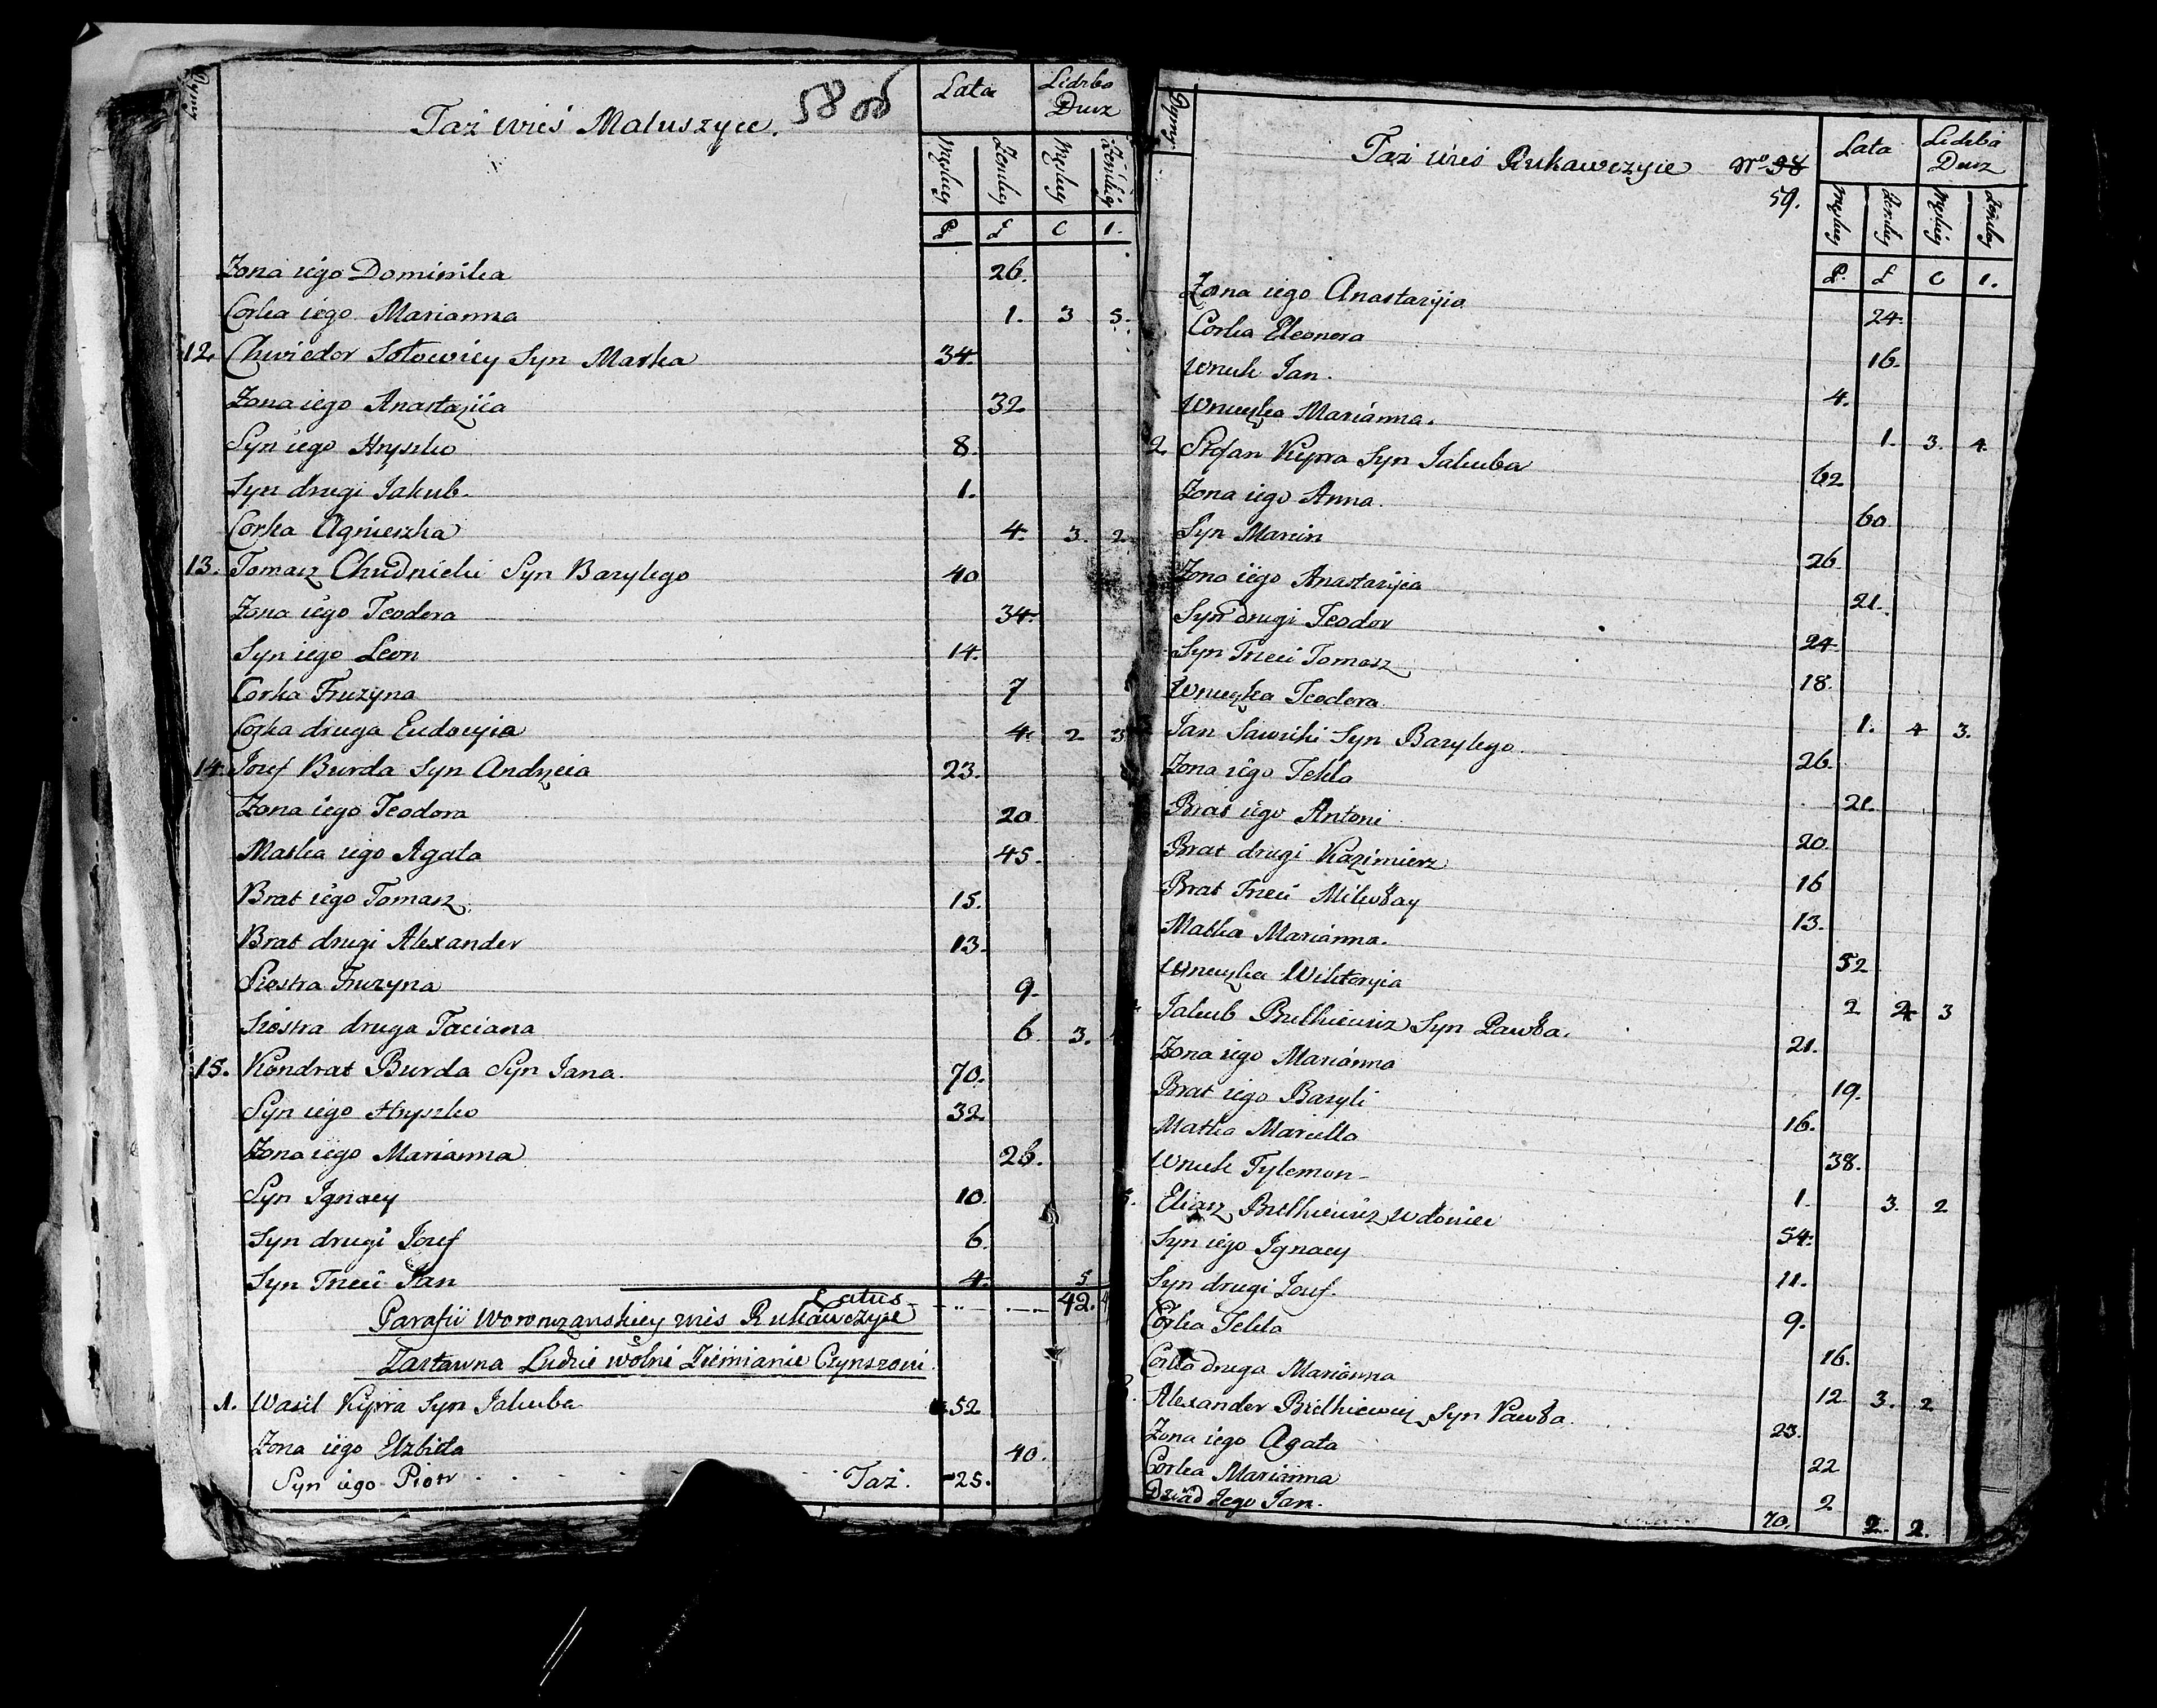 Dymy
Taż wieś Maluszyce. 58 об
Lata Liczba Dusz
Męskiey Żenskiey Męskiey Żenskiey
P L C 1.
Zona iego Dominika 26.
Corka iego Marianna 1. 3 5.
12. Chwiedor Sołowiey Syn Marka 34.
Zona iego Anastazija 32
Syn iego Hryszko 8.
Syn drugi Jakub. 1.
Corka Agnieszka 4. 3. 2.
13. Tomasz Chudnicki Syn Bazylego 40
Zona iego Teodora 34.
Syn iego Leon 14.
Corka Fruzyna 7
Corka druga Eudocyia 4. 2 3
14. Jozef Burda Syn Andrzeia 23.
Zona iego Teodora 20
Matka iego Agata 45.
Brat iego Tomasz 15.
Brat drugi Alexander 13.
Siostra Fruzyna 9.
Siostra druga Taciana 6. 3.
15. Kondrat Burda Syn Jana. 70.
Syn iego Hryszko 32.
Zona iego Marianna 26.
Syn Ignacy 10.
Syn drugi Jozef 6.
Syn Trzeci Jan 4. 5
Latus 42.
Parafii Woronczanskiey wieś Rukawczyce
Zastawna Ludzie wolni Ziemianie Czynszowi
1. Wasil Kipra Syn Jakuba 52
Zona iego Elzbieta 40.
Syn iego Piotr Taż. 25.
Dymy
Taż wieś Rukawczyce No 38
59.
Lata Liczba Dusz
Męskiey Żenskiey Męskiey Żenskiey
P. L C 1.
Zona iego Anastazyia 24.
Corka Eleonora 16.
Wnuk Jan. 4.
Wnuczka Marianna. 1. 3. 4.
2. Stefan Kipra Syn Jakuba 62
Zona iego Anna. 60.
Syn Marcin 26.
Zona iego Anastazyia 21.
Syn drugi Teodor 24
Syn Trzeci Tomasz 18.
Wnuczka Teodora 1. 4 3.
Jan Sawicki Syn Bazylego. 26.
Zona iego Tekla 21.
Brat iego Antoni 20.
Brat drugi Kazimierz 16
Brat Trzeci Mikołay 13.
Matka Marianna. 52
Wnuczka Wiktoryia 2 4 3
Jakub Bielkiewicz Syn Pawła. 21.
Zona iego Marianna 19.
Brat iego Bazyli 16.
Matka Marcella 38.
Wnuk Fylemon 1. 3. 2
5. Eliasz Bielkiewicz wdowiec 54.
Syn iego Ignacy 11.
Syn drugi Jozef. 9.
Corka Tekla 16.
Corka druga Marianna 12 3. 2
Alexander Bielkiewicz Syn Pawła. 23.
Zona iego Agata 22
Corka Marianna 2
Dziad Jego Jan. 70. 2. 2.